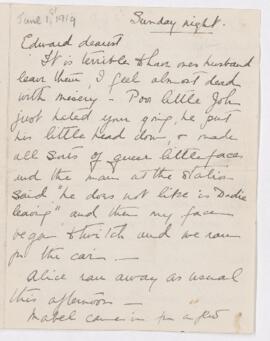 June 1st 1919
Sunday night.
Edward dearest
It is terrible to have ones husband
leave them, I feel almost dead
with misery - Poor little John
just hated you going, he put
his little head down, & made
all sorts of queer little faces
and the man at the station
said "he does not like is Dadie
leaving" and then my face
began to twitch and we ran
for the car. —
Alice ran away as usual
this afternoon —
Mabel came in for a few